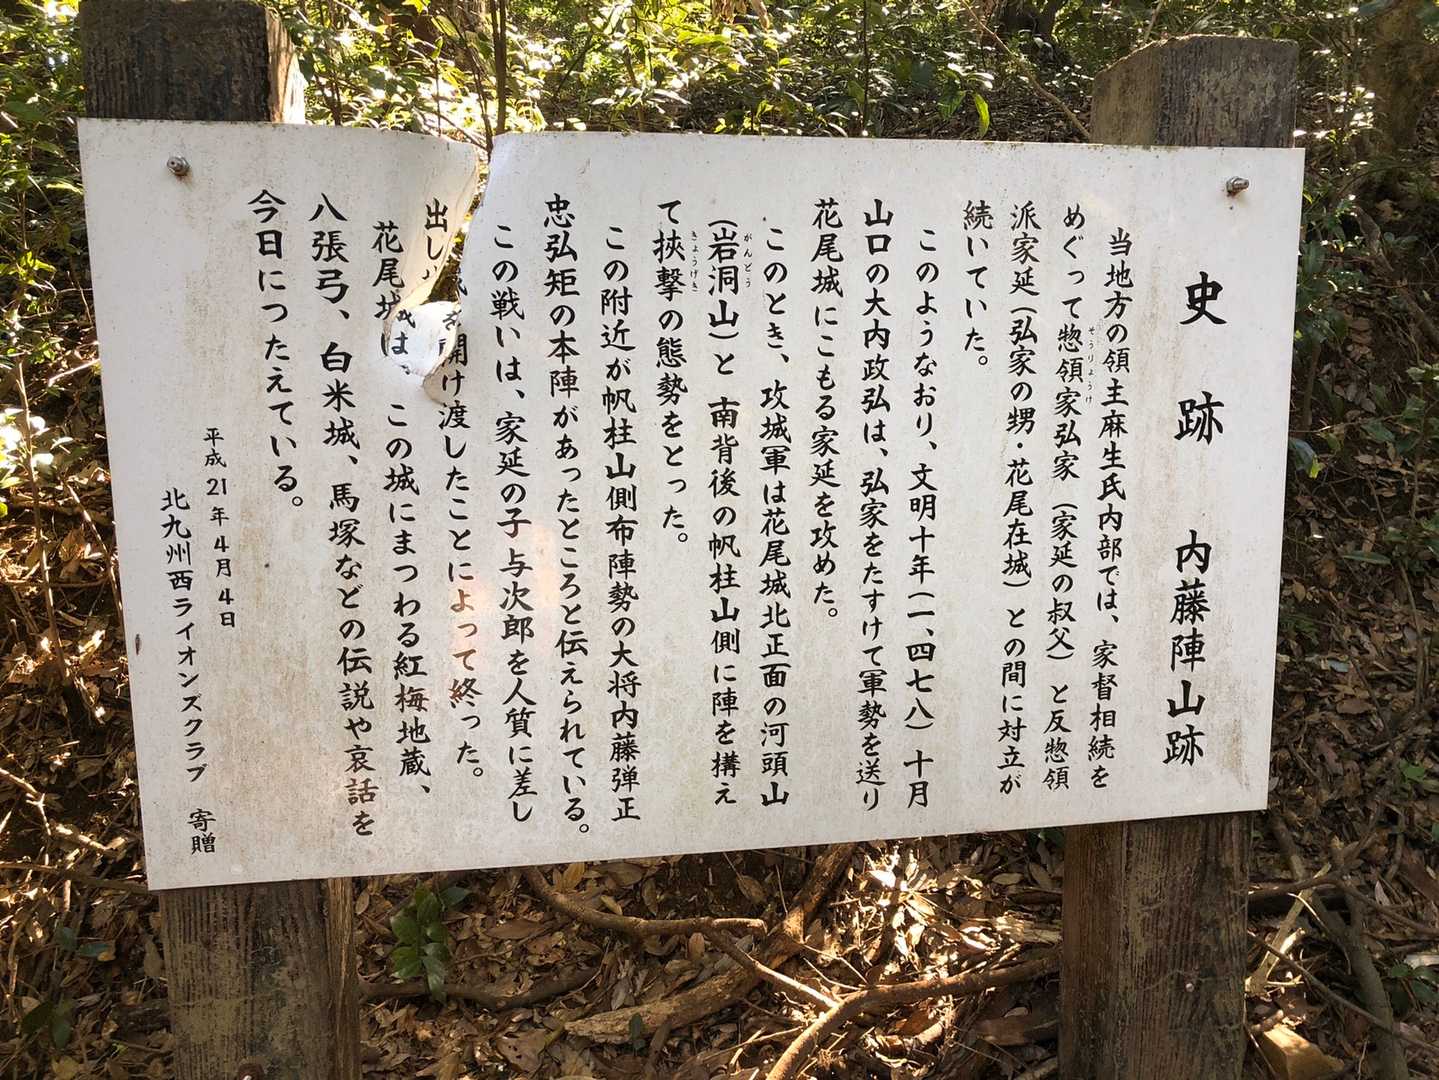 史跡 内藤陣山跡
当地方の領主麻生氏内部では、家督相続を
めぐって惣領家弘家（家延の叔父）と反惣領
そうりょうけ
派家延（弘家の甥・花尾在城）との間に対立が
続いていた。
このようなおり、文明十年（一、四七八）十月
山口の大内政弘は、弘家をたすけて軍勢を送り
花尾城にこもる家延を攻めた。
このとき、攻城軍は花尾城北正面の河頭山
（岩洞山）と南背後の帆柱山側に陣を構え
がんどう
て挾撃の態勢をとった。
きょうげき
この附近が帆柱山側布陣勢の大将内藤弾正
忠弘矩の本陣があったところと伝えられている。
この戦いは、家延の子与次郎を人質に差し
出し を開け渡したことによって終った。
花尾城は この城にまつわる紅梅地蔵、
八張弓、白米城、馬塚などの伝説や哀話を
今日につたえている。
平成21年4月4日
北九州西ライオンズクラブ 寄贈